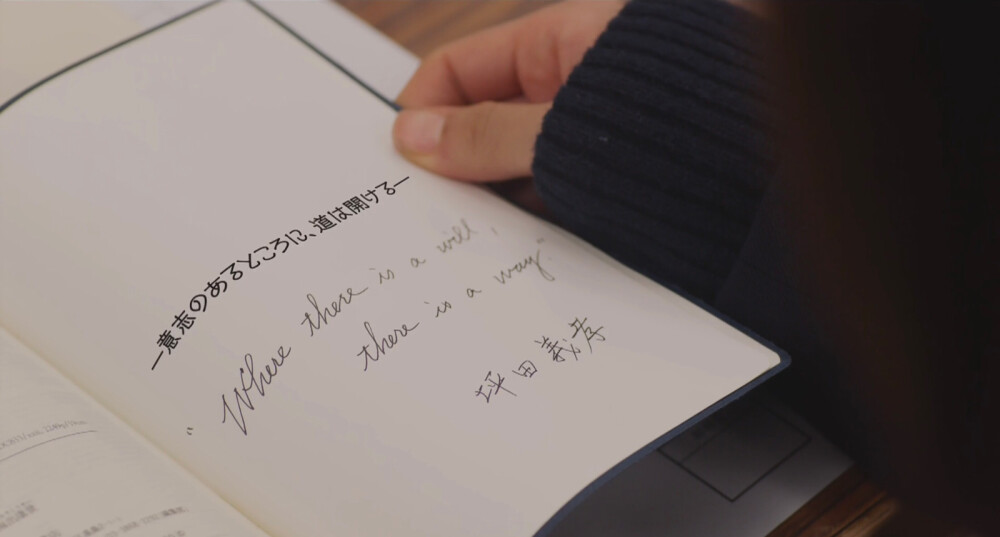 ―意志のあるところに、道は開ける―
"Where there is a will,
there is a way."
坪田義孝